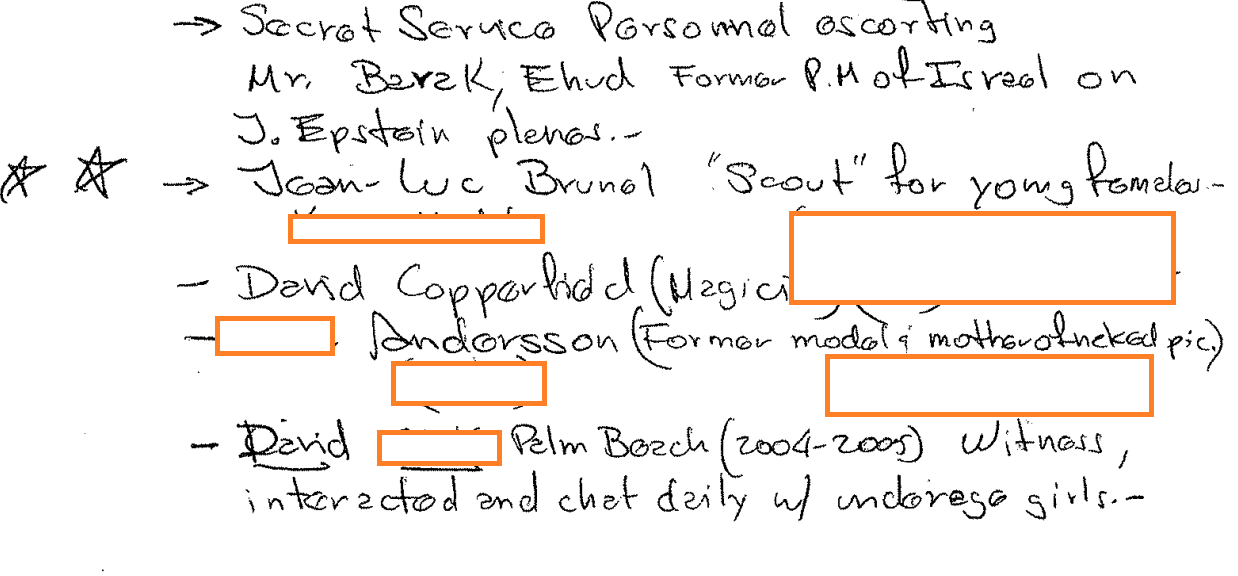 → Secret Service Personnel escorting
Mr. Barak, Ehud Former P.M of Israel on
J. Epstein planes.-
→ Jean-Luc Brunel "Scout" for young females-
- David Copperfield (Magici
- Andersson (Former model & mother of naked pic.)
- David Palm Beach (2004-2005) Witness,
interacted and chat daily w/ underage girls.-